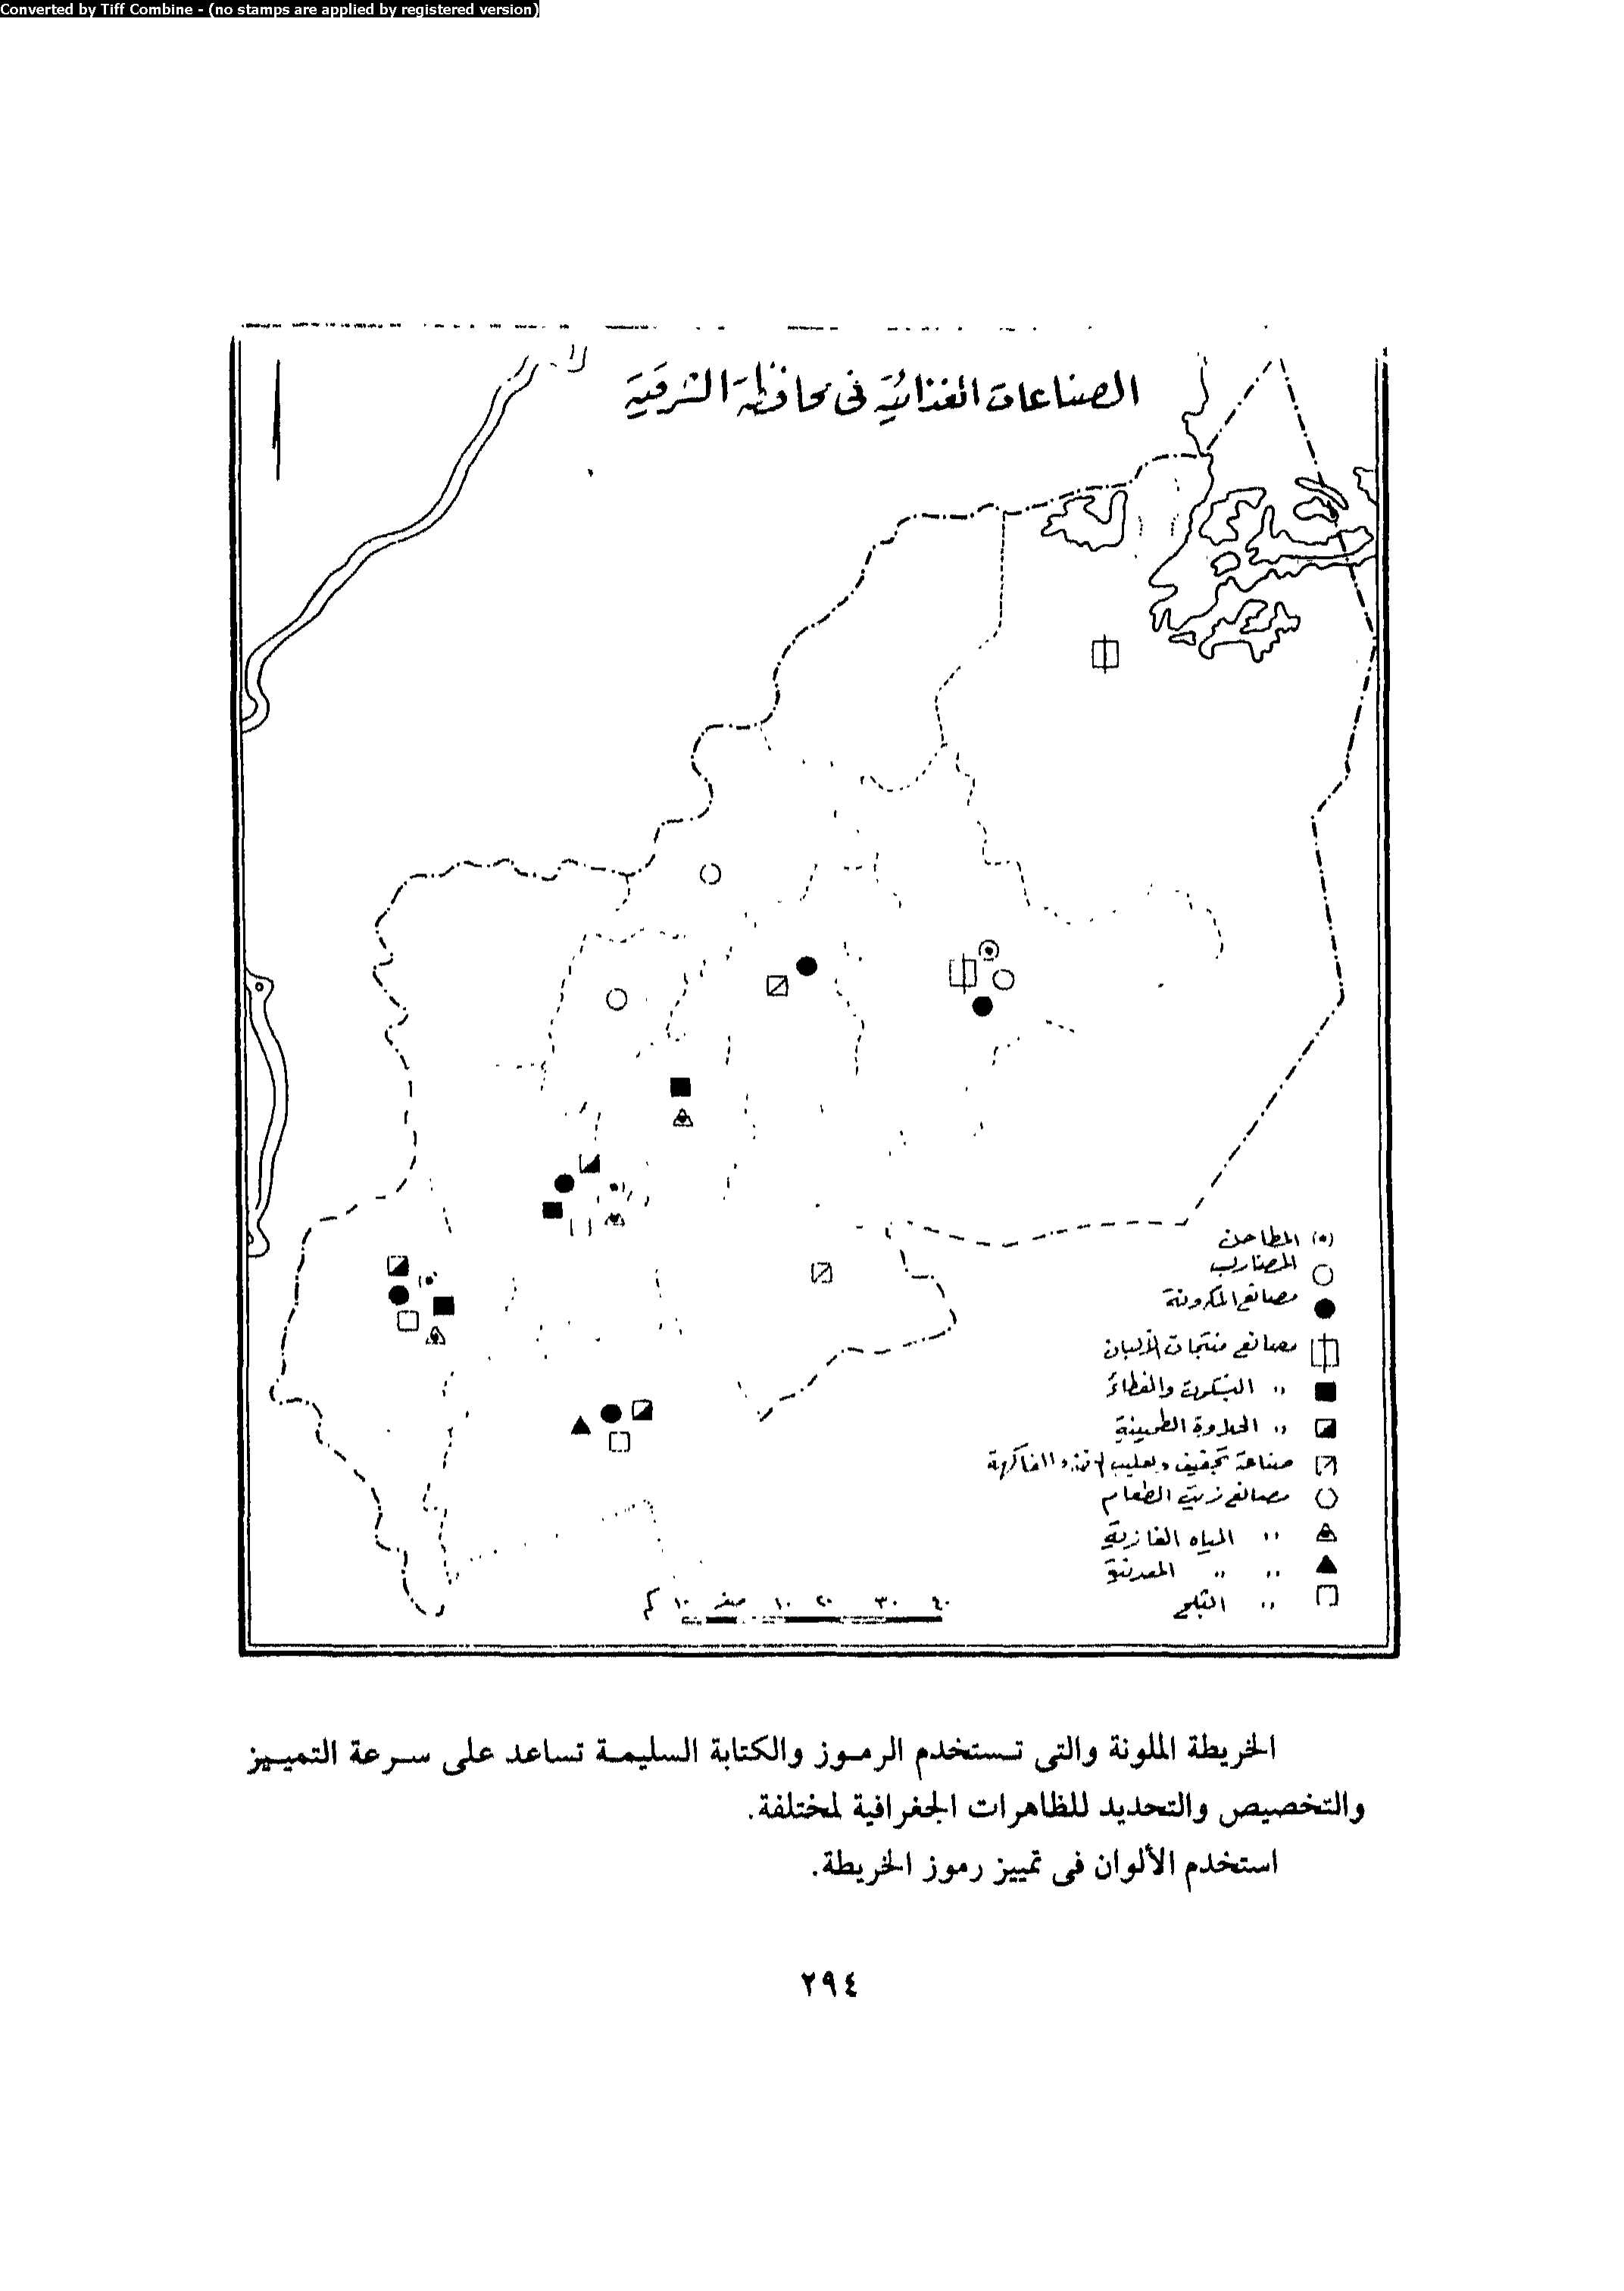 Converted by Tiff Combine - (no stamps are applied by registered version)
الصناعات الغذائية فى محافظة الشرقية
المطاحن
المضارب
مصانع المكرونة
مصانع منتجات الألبان
" البسكويت والفطائر
" الحلاوة الطحينية
صناعة تجفيف وتعليب والفاكهة
مصانع زيت الطعام
" المياه الغازية
" " المعدنية
" الثلج
٤٠ ٣٠ ٢٠ ١٠ صفر ١٠ كم
الخريطة الملونة والتى تستخدم الرموز والكتابة السليمة تساعد على سرعة التمييز
والتخصيص والتحديد للظاهرات الجغرافية لمختلفة.
استخدم الألوان فى تمييز رموز الخريطة.
٢٩٤